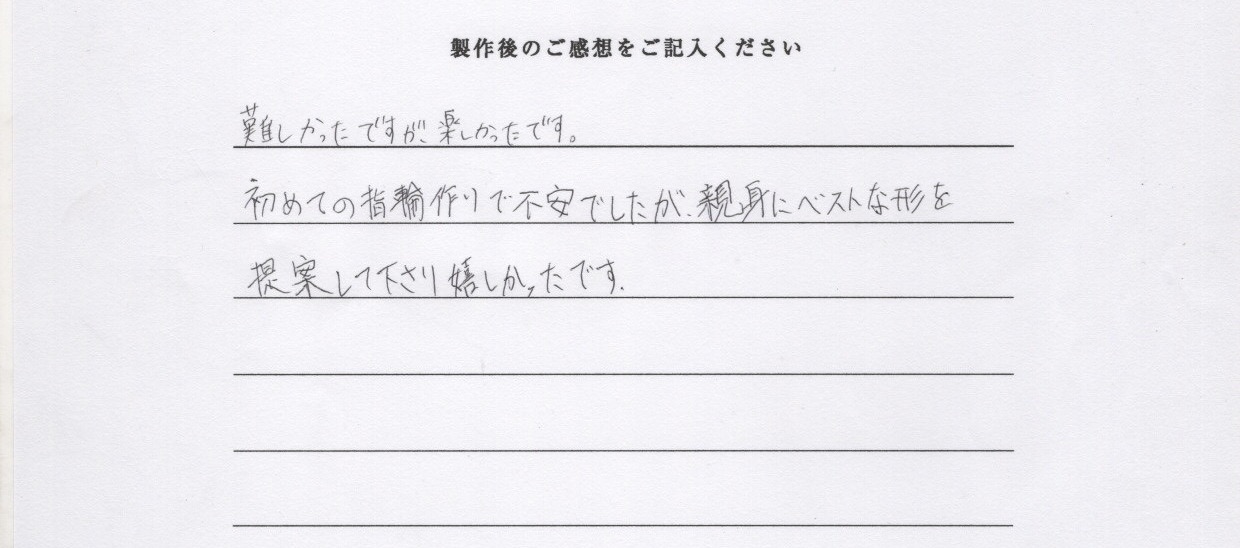 製作後のご感想をご記入ください
難しかったですが、楽しかったです。
初めての指輪作りで不安でしたが、親身にベストな形を
提案して下さり嬉しかったです.